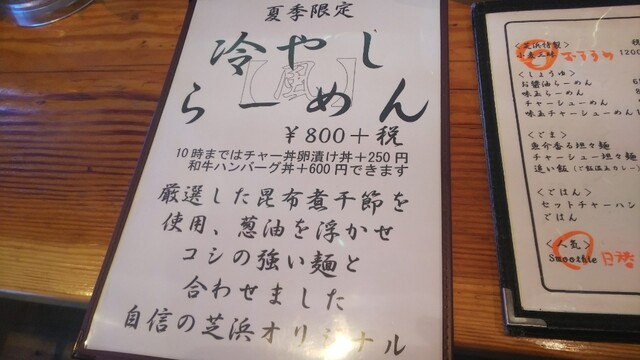 夏季限定
冷やし
【風】
らーめん
¥800+税
10時まではチャー丼卵漬け丼+250円
和牛ハンバーグ丼+600円できます
厳選した昆布煮干節を
使用、葱油を浮かせ
コシの強い麺と
合わせました
自信の芝浜オリジナル
<芝浜特製>
1200
<しょうゆ>
お醤油らーめん
味玉らーめん
チャーシューめん
味玉チャーシューめん
<ごま>
魚介香る坦々麺
チャーシュー坦々麺
追い飯(ご飯
<ごはん>
セットチャーハン
ごはん
<人気>
Smoothie